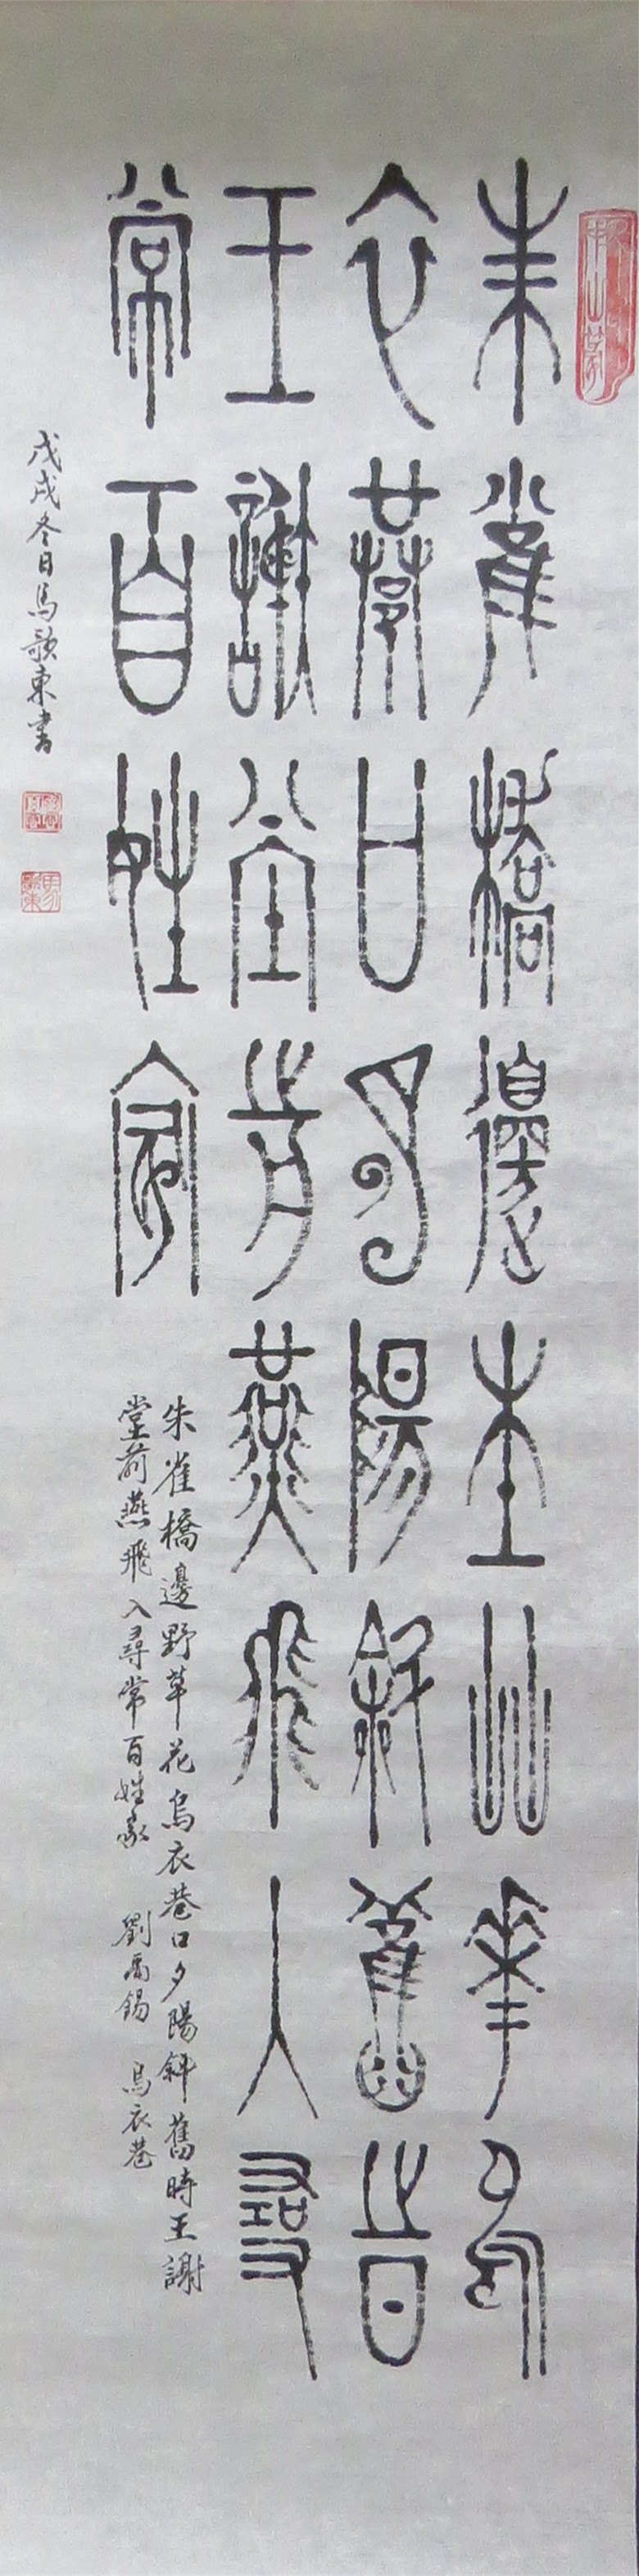 朱雀橋邊埜艸華烏
衣巷口夕陽斜舊旹
王謝堂前燕飛入尋
常百姓家
朱雀橋邊野草花烏衣巷口夕陽斜舊時王謝
堂前燕飛入尋常百姓家 劉禹錫 烏衣巷
戊戌冬日馬歌東書